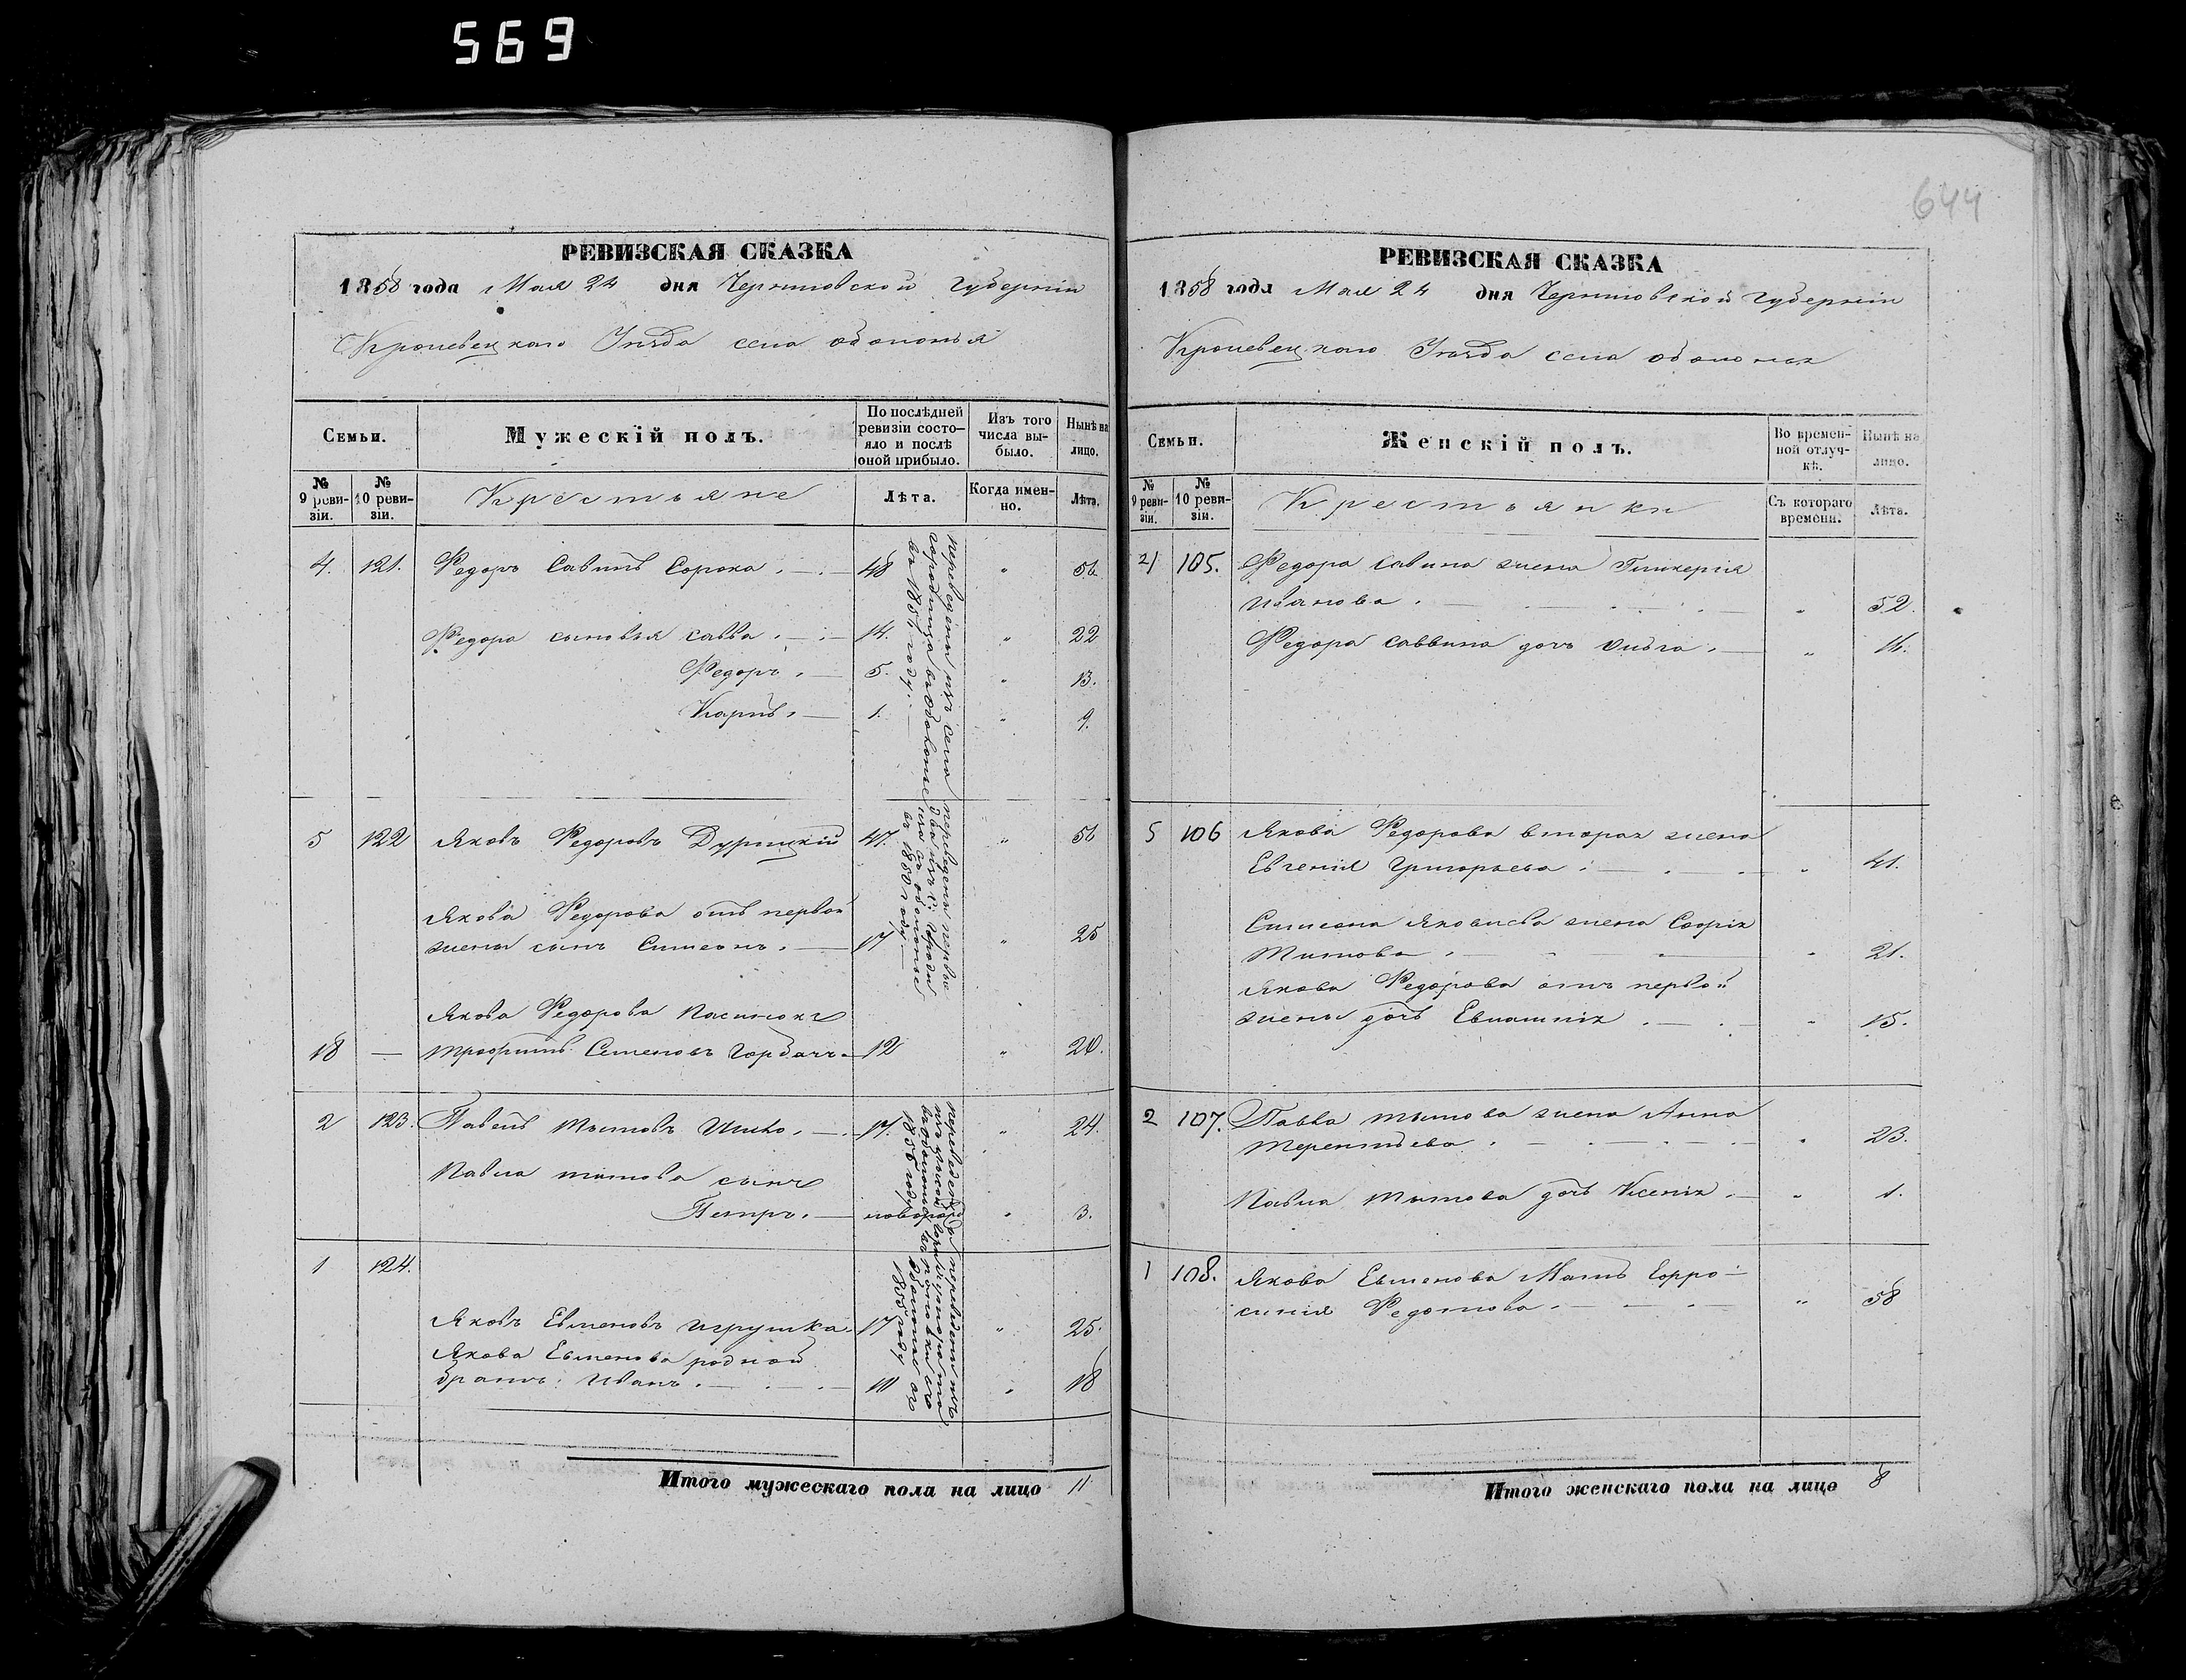 569
644
РЕВИЗСКАЯ СКАЗКА
1858 года Мая 24 дня Черниговской Губерніи
Кролевецкаго Уѣзда села Оболонья
Семьи.
Мужескій полъ.
По послѣдней ревизіи состояло и послѣ оной прибыло.
Изъ того числа выбыло.
Нынѣ на лицо.
№ 9 ревизіи.
№ 10 ревизіи.
Крестьяне
Лѣта.
Когда именно.
Лѣта.
4. 121. Федоръ Савинъ Сорока. 48 " 56
Федора сыновья Савва. 14. " 22
Федоръ. 5. " 13.
Карпъ. 1. " 9.
переведены изъ села
въ Оболонье
въ 1856 году.
5 122 Яковъ Федоровъ 47. "
Якова Федорова отъ первой
жены сынъ Симеонъ. 17 " 25
Якова Федорова пасынокъ
18 — Трофимъ Семеновъ Горбачъ 12 " 20.
въ 1850 году
2 123. Павелъ Титовъ 17. " 24.
Павла Титова сынъ
Петръ. новорож " 3.
1 124.
Яковъ Евменовъ Игрушка. 17 " 25.
Якова Евменова родной
братъ Иванъ. 10 " 18
Итого мужескаго пола на лицо 11
РЕВИЗСКАЯ СКАЗКА
1858 года Мая 24 дня Черниговской Губерніи
Кролевецкаго Уѣзда села Оболонья
Семьи.
Женскій полъ.
Во временной отлучкѣ.
Нынѣ на лицо.
№ 9 ревизіи.
№ 10 ревизіи.
Крестьянки
Съ котораго времени.
Лѣта.
105. Федора Савина жена Гликерія
Иванова. " 52.
Федора Саввина дочь Ольга. " 16.
5 106 Якова Федорова вторая жена
Евгенія Григорьева " 41.
Симеона Яковлева жена Софія
Титова. " 21.
Якова Федорова отъ первой
жены дочь " 15.
2 107. Павла Титова жена Анна
Терентьева. " 23.
Павла Титова дочь Ксенія. " 1.
1 108. Якова Евменова Мать Ефросинія
Федотова. " 58
Итого женскаго пола на лицо 8